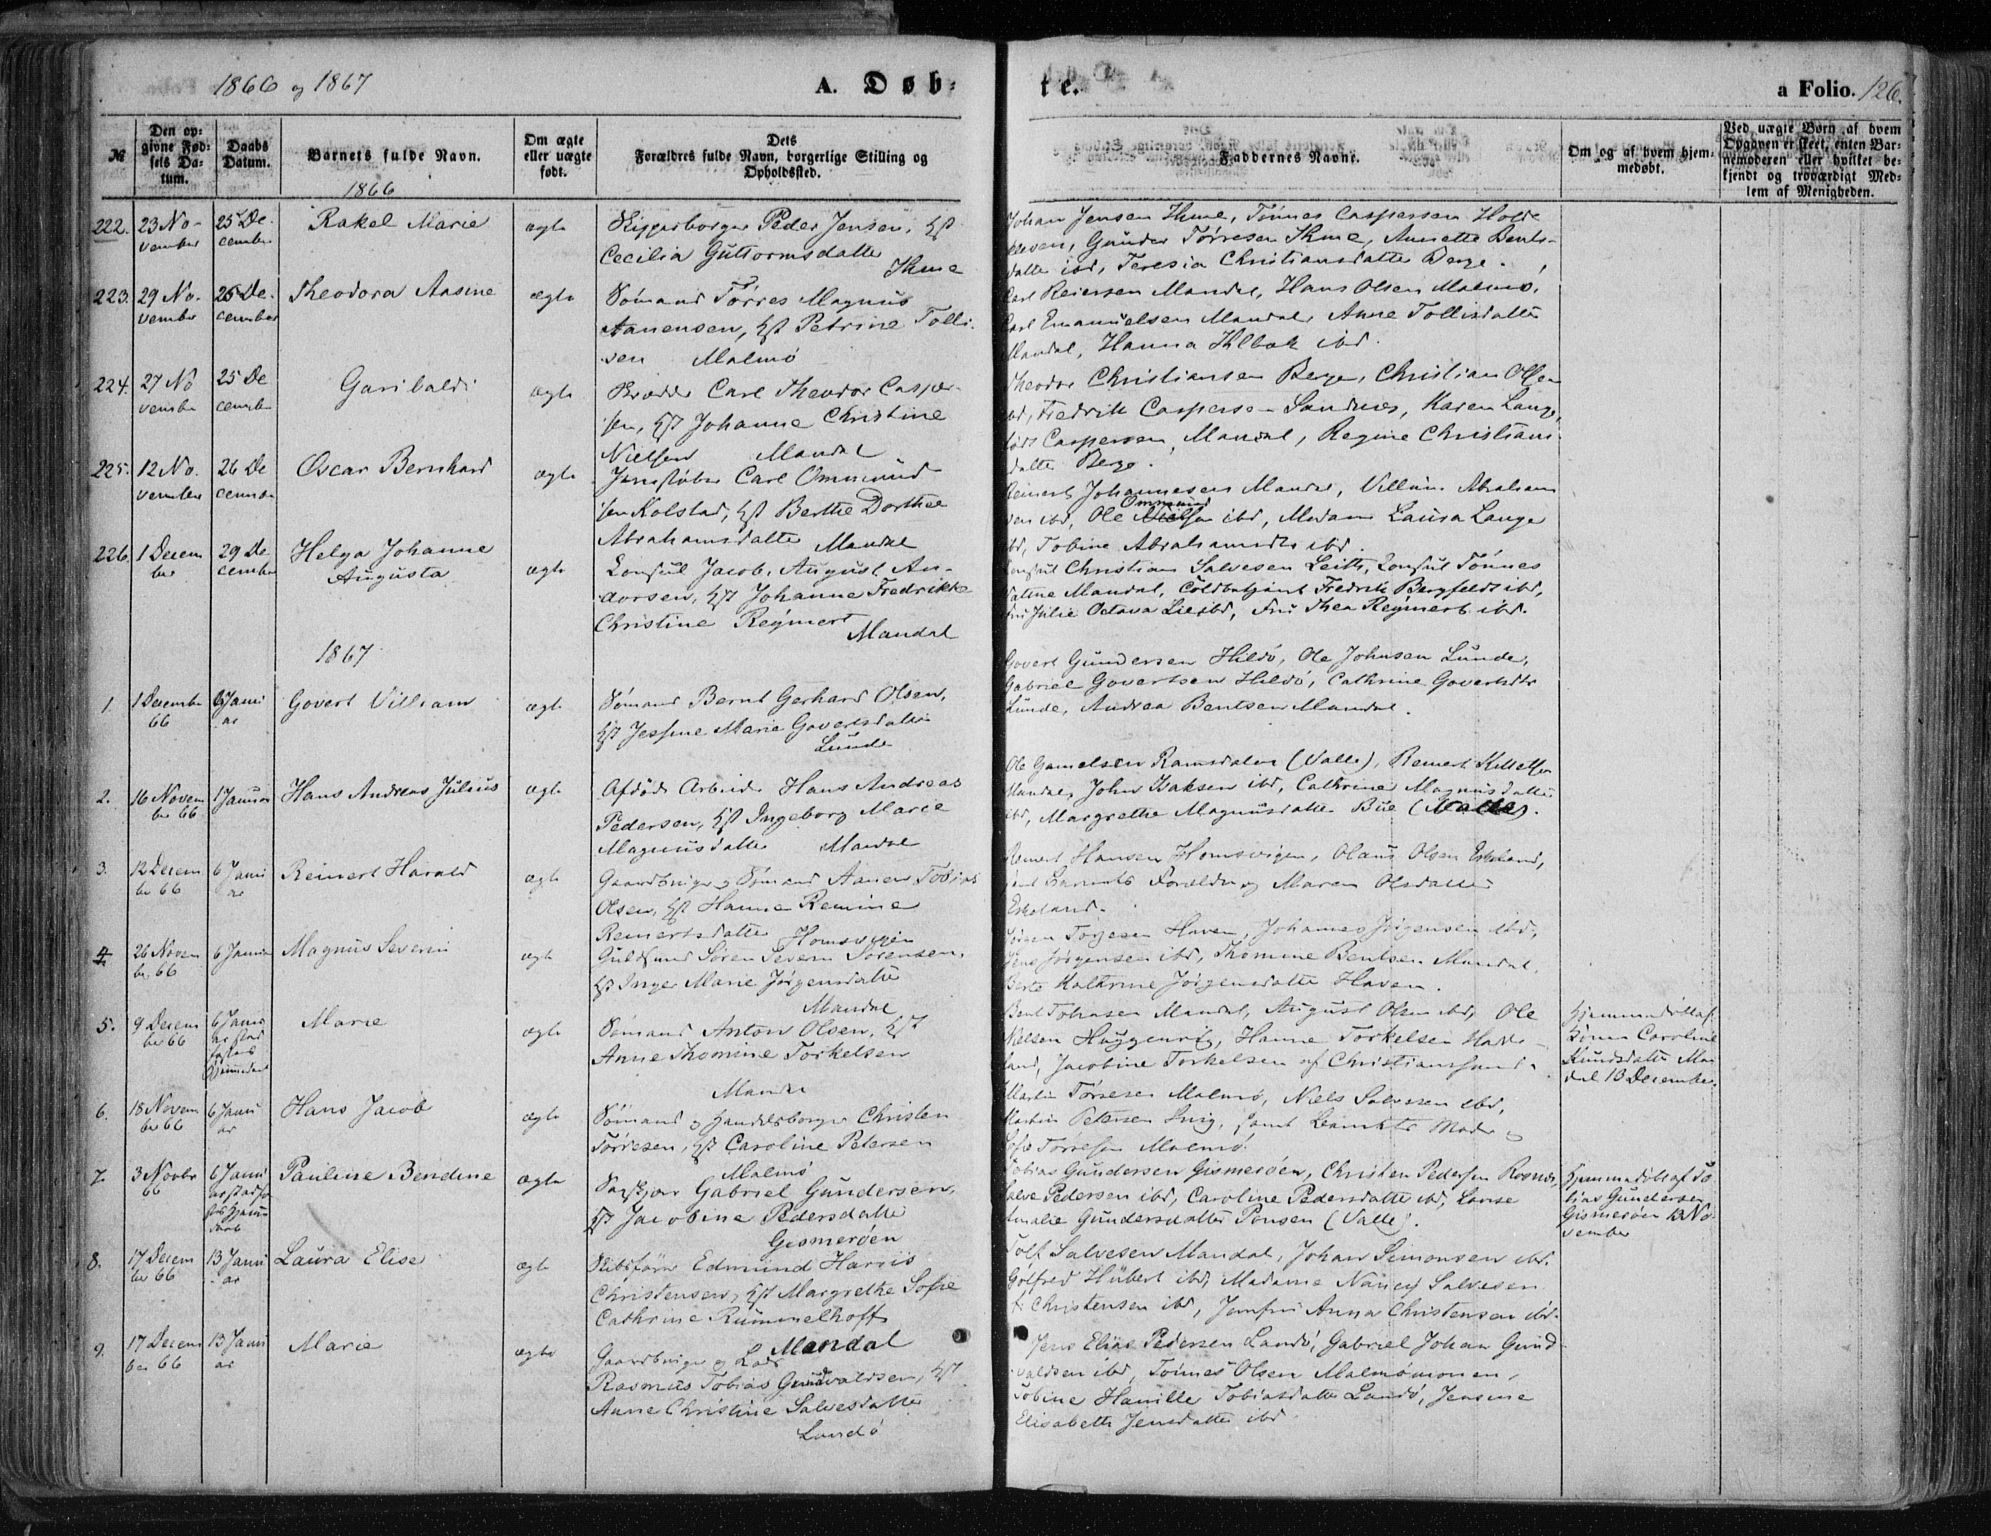 1866 og 1867
A. Døb-
te.
a Folio. 126.
№
Den opgivne Fødsels Datum.
Daabs Datum.
Barnets fulde Navn.
Om ægte eller uægte født.
Dets Forældres fulde Navn, borgerlige Stilling og Opholdssted.
Faddernes Navne.
Om og af hvem hjemmedøbt.
Ved uægte Børn af hvem Opgaven er skeet, enten Barnemoderen eller hvilket bekjendt og troværdigt Medlem af Menigheden.
1866
222. 23 November 25 December Rakel Marie ægte
Skipperborger Peder Jensen, Hst
Cecilia Guttormsdatter
Ihme
Johan Jensen Ihme, Tønnes Caspersen Holte
kleven, Gunder Tørresen Ihme, Annette Bents-
datter ibd, Teresia Christiansdatter Berge.
223. 29 November 25 December Theodora Aasine ægte
Sømand Tørres Magnus
Aanensen, Hst Petrine Tolli-
sen Malmø
Carl Reiersen Mandal, Hans Olsen Malmø,
Carl Emanuelsen Mandal, Anne Tollisdatter
Mandal, Hanna Holbæk ibd.
224. 27 November 25 December Garibaldi ægte
Carl Theodor Casper-
sen, Hst Johanne Christine
Nielsen Mandal
Theodor Christiansen Berge, Christian Olsen
ibd, Fredrik Caspersen Sandnes, Karen Lange,
født Caspersen, Mandal, Regine Christians-
datter Berge.
225. 12 November 26 December Oscar Bernhard ægte
Jernstøber Carl Ommund-
sen Kolstad, Hst Berthe Dorthea
Abrahamsdatter Mandal
Reinert Johannesen Mandal, Villum Abraham
sen ibd, Ole Ommund
sen ibd, Madam Laura Lange
ibd, Tobine Abrahamsdtr ibd.
226. 1 December 29 December Helga Johanne
Augusta ægte
Konsul Jacob August An-
dorsen, Hst Johanne Fredrikke
Christine Reymert
Mandal
Konsul Christian Salvesen Leith, Konsul Tønnes
Mandal, Toldbetjent Fredrik Bergfeldt ibd,
Fru Julie Octava Lie ibd, Fru Thea Reymert ibd.
1867
1. 1 December 66 6 Januar Govert Villiam ægte
Sømand Bernt Gerhard Olsen,
Hst Jessine Marie Govertsdatter
Lunde
Govert Gundersen Hildø, Ole Johnsen Lunde,
Gabriel Govertsen Hildø, Cathrine Govertsdtr
Lunde, Andrea Bentsen Mandal.
2. 16 November 66 1 Januar Hans Andreas Julius ægte
Afdøde Arbeider Hans Andreas
Pedersen, Hst Ingeborg Marie
Magnusdatter Mandal
Ole Gamelsen Ramsdalen (Valle), Reinert Killelsen
Mandal, John Isaksen ibd, Cathrine Magnusdatter
ibd, Margrethe Magnusdatter Bue (Valle).
3. 12 December 66 6 Januar Reinert Harald ægte
Gaardbruger og Sømand Aanen Tobias
Olsen, Hst Hanne Remine
Reinertsdatter Homsvigen
Reinert Hansen Homsvigen, Olaus Olsen Eskeland,
samt Barnets Forældre og Maren Olsdatter
Eskeland.
4. 26 November 66 6 Januar Magnus Severin ægte
Guldsmed Søren Severin Sørensen,
Hst Inger Marie Jørgensdatter
Mandal
Jørgen Torjesen Haven, Johannes Jørgensen ibd,
Jens Jørgensen ibd, Thomine Bentsen Mandal,
Berte Kathrine Jørgensdatter Haven.
5. 9 December 66 6 Januar Marie ægte
Sømand Anton Olsen, Hst
Anne Thomine Torkelsen
Mandal
Bent Tobiasen Mandal, August Olsen ibd, Ole
Nielsen Huggenes, Hanne Torkelsen Hadde-
land, Jacobine Torkelsen af Christianssand.
Hjemmedøbt af
Konen Caroline
Knudsdatter Man
dal 13 December.
6. 18 November 66 6 Januar Hans Jacob ægte
Sømand og Handelsborger Christen
Tørresen, Hst Caroline Petersen
Malmø
Martin Tørresen Malmø, Niels Salvesen ibd,
Martin Petersen Snig, samt Barnets Moder og
Sofie Torresen Malmø.
7. 3 Novbr 66 6 Januar Pauline Bendine ægte
Gabriel Gundersen,
Hst Jacobine Pedersdatter
Gismerøen
Tobias Gundersen Gismerøen, Christen Pedersen Rosnes,
Salve Pedersen ibd, Caroline Pedersdatter ibd, Lovise
Amalie Gundersdatter Ponsen (Valle).
Hjemmedøbt af To
bias Gundersen
Gismerøen 13 No
vember
8. 17 December 66 13 Januar Laura Elise ægte
Skibsfører Edmund Harris
Christensen, Hst Margrethe Sofie
Cathrine Rummelhoff
Mandal
Tolf Salvesen Mandal, Johan Simonsen ibd.
Gotfred Hubert ibd, Madame Nancy Salvesen
f. Christensen ibd, Jomfru Anna Christensen ibd.
9. 17 December 66 13 Januar Marie ægte
Gaardbruger og Lods
Rasmus Tobias Gundvaldsen, Hst
Anne Christine Salvesdatter
Landø
Jens Elias Pedersen Landø, Gabriel Johan Gund-
valdsen ibd, Tønnes Olsen Malmømonen,
Tobine Hamille Tobiasdatter Landø, Jensine
Elisabeth Jensdatter ibd.